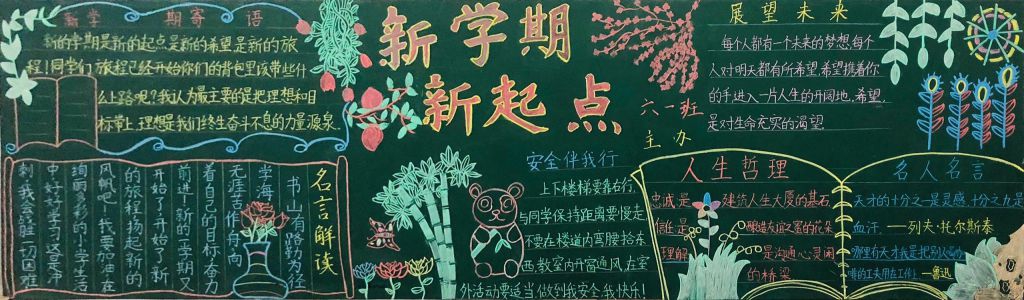 新学期寄语
新的学期是新的起点是新的希望是新的旅
程!同学们,旅程已经开始你们的背包里该带些什
么上路呢?我认为最主要的是把理想和目
标带上,理想是我们终生奋斗不息的力量源泉.
新学期
新起点
六一班
主办
展望未来
每个人都有一个未来的梦想,每个
人对明天都有所希望,希望携着你
的手进入一片人生的开阔地,希望,
是对生命充实的渴望.
名言解读
书山有路勤为径
学海无涯苦作舟,向
着自己的目标奋力
前进!新的学期又
开始了,开始了新
的旅程,扬起新的
风帆吧!我要加油,在
绚丽多彩的小学生活
中好好学习,这是冲
刺,我会战胜一切困难
安全伴我行
上下楼梯要靠右行,
与同学保持距离要慢走
不要在楼道内弯腰拾东
西,教室内开窗通风,在室
外活动要适当,做到我安全,我快乐!
人生哲理
忠诚是 建筑人生大厦的基石,
信任是 酿造友谊之蜜的花朵
理解 是沟通心灵闲
的桥梁
名人名言
天才的十分之一是灵感,十分之九是
血汗. ——列夫·托尔斯泰
哪里有天才,我是把别人喝咖
啡的工夫用在工作上 —鲁迅